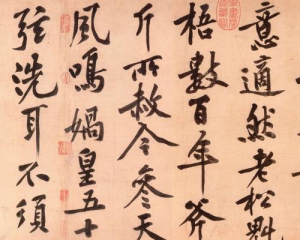 意適然老松魁
梧數百年斧
斤所赦今參天
風鳴媧皇五十
弦洗耳不須